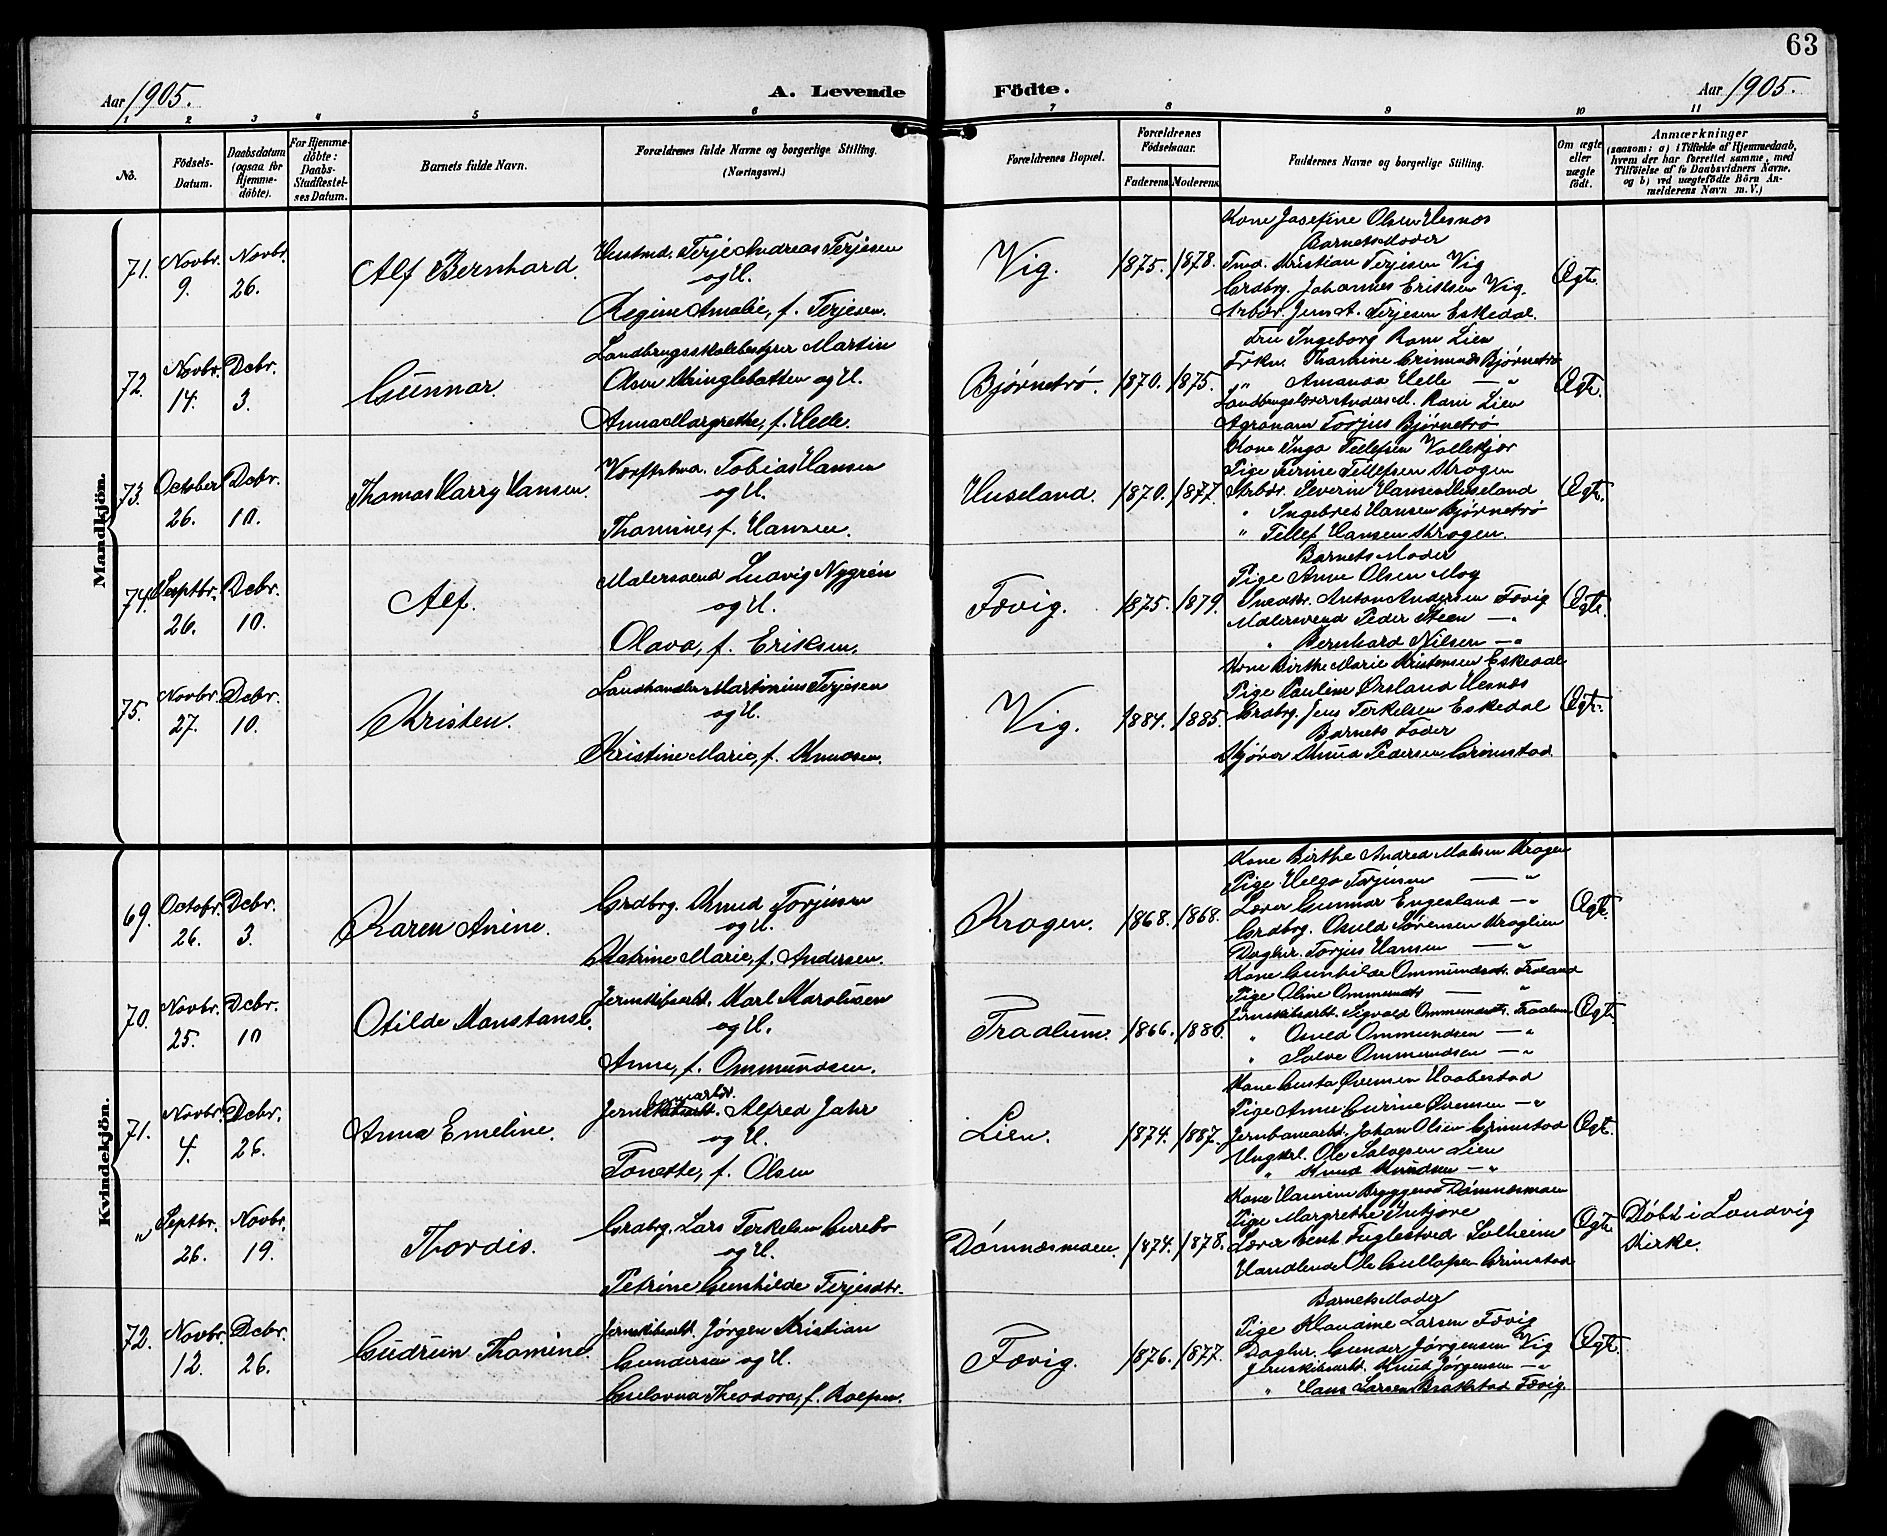 63
Aar 1905. A. Levende Födte. Aar 1905.
1 2 3 4 5 6 7 8 9 10 11
No. Födsels-Datum. Daabsdatum (ogsaa for Hjemme-döbte). For Hjemme-döbte: Daabs-Stadfæstelses Datum. Barnets fulde Navn. Forældrenes fulde Navne og borgerlige Stilling. (Næringsvei.) Forældrenes Bopæl. Forældrenes Födselsaar. Faderens. Moderens. Faddernes Navne og borgerlige Stilling. Om ægte eller uægte födt. Anmærkninger (saasom: a) i Tilfælde af Hjemmedaab, hvem der har forrettet samme, med Tilföielse af to Daabsvidners Navne, og b) ved uægtefödte Börn Anmelderens Navn m. V.)
Mandkjön.
71. Novbr. 9. Novbr. 26. Alf Bernhard. Husmd. Terje Andreas Terjesen
og H.
Regine Amalie, f. Terjesen.
Vig. 1875. 1878. Kone Josefine Olsen Hesnæs
Barnets Moder
Tmd. Kristian Terjesen Vig
Grdbrg. Johannes Eriksen Vig.
Arbdr. Jens A. Terjesen Eskedal.
Ægte.
72. Novbr. 14. Decbr. 3. Gunnar. Landbrugsskolebestyrer Martin
Olsen Kringlebotten og H.
Anna Margrethe, f. Helle.
Bjørnetrø. 1870. 1875. Fru Ingeborg Ram Lien
Frkn. Thomine Bjørnetrø
" Amanda Helle — "
Landbrugslærer Anders M. Ram Lien
Agronom Torjus Bjørnetrø
Ægte.
73. October 26. Decbr. 10. Thomas Harry Hansen. Værftstmd. Tobias Hansen
og H.
Thomine, f. Hansen.
Huseland. 1870. 1877. Kone Inga Tellefsen Vollekjær
Pige Tellefsen Krogen
Arbdr. Severin Hansen Huseland
" Ingebret Hansen Bjørnetrø
" Tellef Hansen Krogen.
Ægte.
74. Septbr. 26. Decbr. 10. Alf. Malersvend Ludvig Nygrén
og H.
Olava, f. Eriksen.
Fævig. 1875. 1879. Barnets Moder
Pige Anne Olsen Moy
Snedkr. Anton Andersen Fævig
Malersvend Peder Steen — "
" Bernhard Nilsen — "
Ægte.
75. Novbr. 27. Decbr. 10. Kristen. Landhandler Martinius Terjesen
og H.
Kristine Marie, f. Knudsen.
Vig. 1884. 1885. Kone Birthe Marie Kristensen Eskedal
Pige Pauline Ørsland Hesnæs
Grdbrg. Jens Terkelsen Eskedal
Barnets Fader
Knud Pedersen Grimstad.
Ægte.
Kvindekjön.
69. Octobr. 26. Decbr. 3. Karen Anine. Grdbrg. Knud Torjusen
og H.
Katrine Marie, f. Andersen.
Krogen. 1868. 1868. Kone Birthe Andrea Madsen Krogen
Pige Helga Torjusen — "
Lærer Gunnar Engesland — "
Grdbrg. Osuld Sørensen Kroglien
Torjus Hansen — "
Ægte.
70. Novbr. 25. Decbr. 10 Otilde Konstanse. Jernskibsarbt. Karl Karolusen
og H.
Anne, f. Ommundsen.
Tradlum. 1866. 1880. Kone Gunhilde Ommundsdtr. Froland
Pige Oline Ommundsdtr — "
Jernskibsarbt. Sigvald Ommundsen. Tradlum
" Omed Ommundsen — "
" Salve Ommundsen — "
Ægte.
71. Novbr. 4. Decbr. 26. Anna Emeline. Jernbanearbt. Alfred Jahr
og H.
Tonette, f. Olsen
Lien. 1874. 1887. Kone Gusta Evensen Haabestad
Pige Anne Gurine Evensen — "
Jernbanearbt. Johan Olsen Grimstad
Ungkrl. Ole Salvesen Lien
" Knud Knudsen — "
Ægte.
" Septbr. 26. Novbr. 19. Thordis. Grdbrg. Lars Terkelsen Gurebo
og H.
Petrine Gunhilde Terjesdtr.
Dømnæsmoen. 1874. 1878. Kone Dømnæsmoen
Pige Margrethe
Lærer Gent Fuglestved Solheim
Ole Gullaksen Grimstad
Ægte Døbt i Landvig
Kirke.
72. Novbr. 12. Decbr. 26. Gudrun Thomine. Jernskibsarbt. Jørgen Kristian
Gundersen og H.
Theodora, f. Rolfsen.
Fævig. 1876. 1877. Barnets Moder
Pige Klaudine Larsen Fævig
Gunder Jørgensen Vig
Jernskibsarbt. Knud Jørgensen — "
" Hans Larsen Brækstad Fævig.
Ægte.